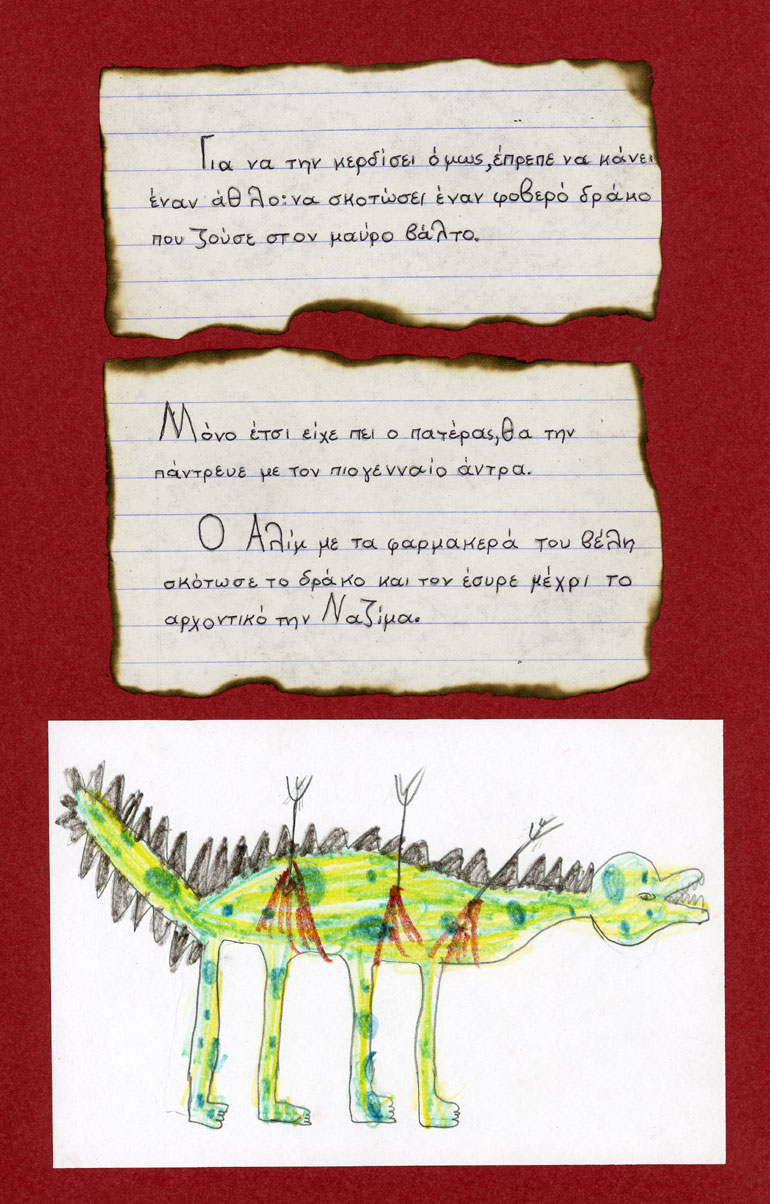 Για να την κερδίσει όμως, έπρεπε να κάνει
έναν άθλο: να σκοτώσει έναν φοβερό δράκο
που ζούσε στον μαύρο βάλτο.
Μόνο έτσι είχε πει ο πατέρας, θα την
πάντρευε με τον πιο γενναίο άντρα.
Ο Αλίμ με τα φαρμακερά του βέλη
σκότωσε το δράκο και τον έσυρε μέχρι το
αρχοντικό την Ναζίμα.